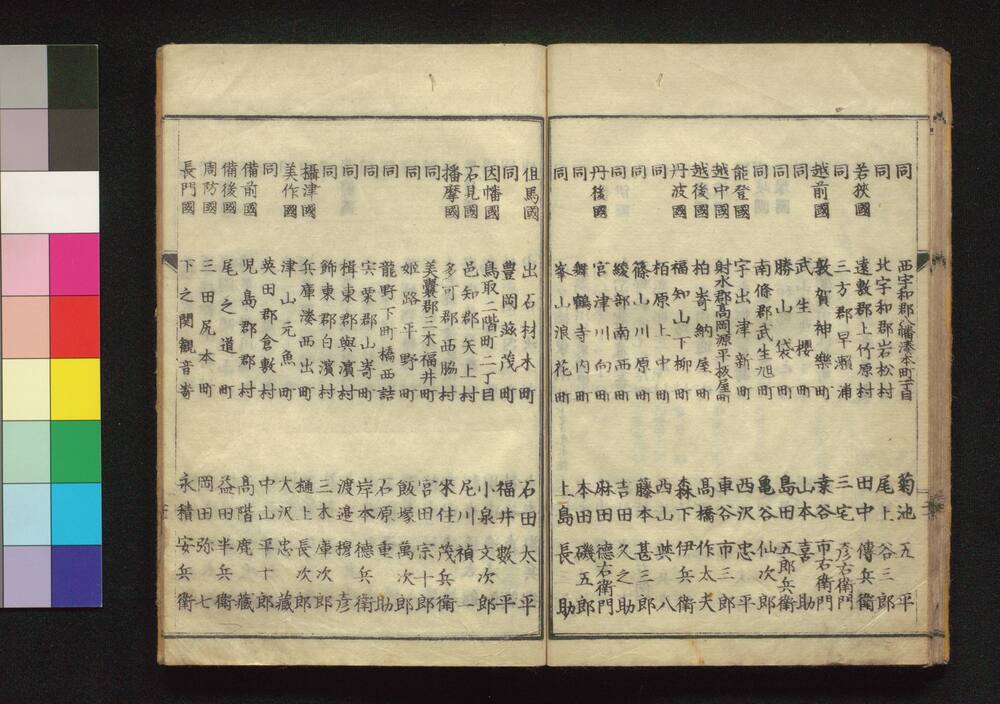 同 西宇和郡八幡濱本町一丁目 菊池五平
同 北宇和郡岩松村 尾上谷三郎
若狹國 遠敷郡上竹原村 田中傳兵衛
同 三方郡早瀬浦 三宅彦右衛門
越前國 敦賀神樂町 幸谷市右衛門
同 武生櫻町 山本喜助
同 勝山袋町 島田五郎兵衛
同 南條郡武生旭町 亀谷仙次郎
能登國 宇出津新町 西沢忠平
越中國 射水郡高岡源平板屋町 車谷市三郎
越後國 柏嵜納屋町 髙橋作太夫
丹波國 福知山下柳町 森下伊兵衛
同 柏原上中町 西山與八
同 篠山川原町 藤本甚三郎
同 綾部南西町 吉田久之助
丹後國 宮津川向町 麻田德右衛門
同 舞鶴寺内町 本田磯五郎
同 峯山浪花町 上島長助
但馬國 出石材木町 石田太平
同 豊岡滋茂町 福井數平
因幡國 鳥取二階町二丁目 小泉文次郎
石見國 邑知郡矢上村 尼川禎一
播摩國 多可郡西脇村 來住茂兵衛
同 美嚢郡三木福井町 宮田宗十郎
同 姫路平野町 飯塚萬次郎
同 龍野下町橋西詰 石原重助
同 宍粟郡山嵜町 岸本德兵衛
同 楫東郡與濱村 渡邉㨨彦
同 飾東郡白濱村 三木庫次郎
攝津國 兵庫湊西出町 樋上長次郎
美作國 津山元魚町 大沢忠藏
同 英田郡倉敷村 中山平十郎
備前國 児島郡郡村 髙階鹿藏
備後國 尾之道町 益田半兵衛
周防國 三田尻本町 岡田弥七
長門國 下之関観音嵜 永積安兵衛